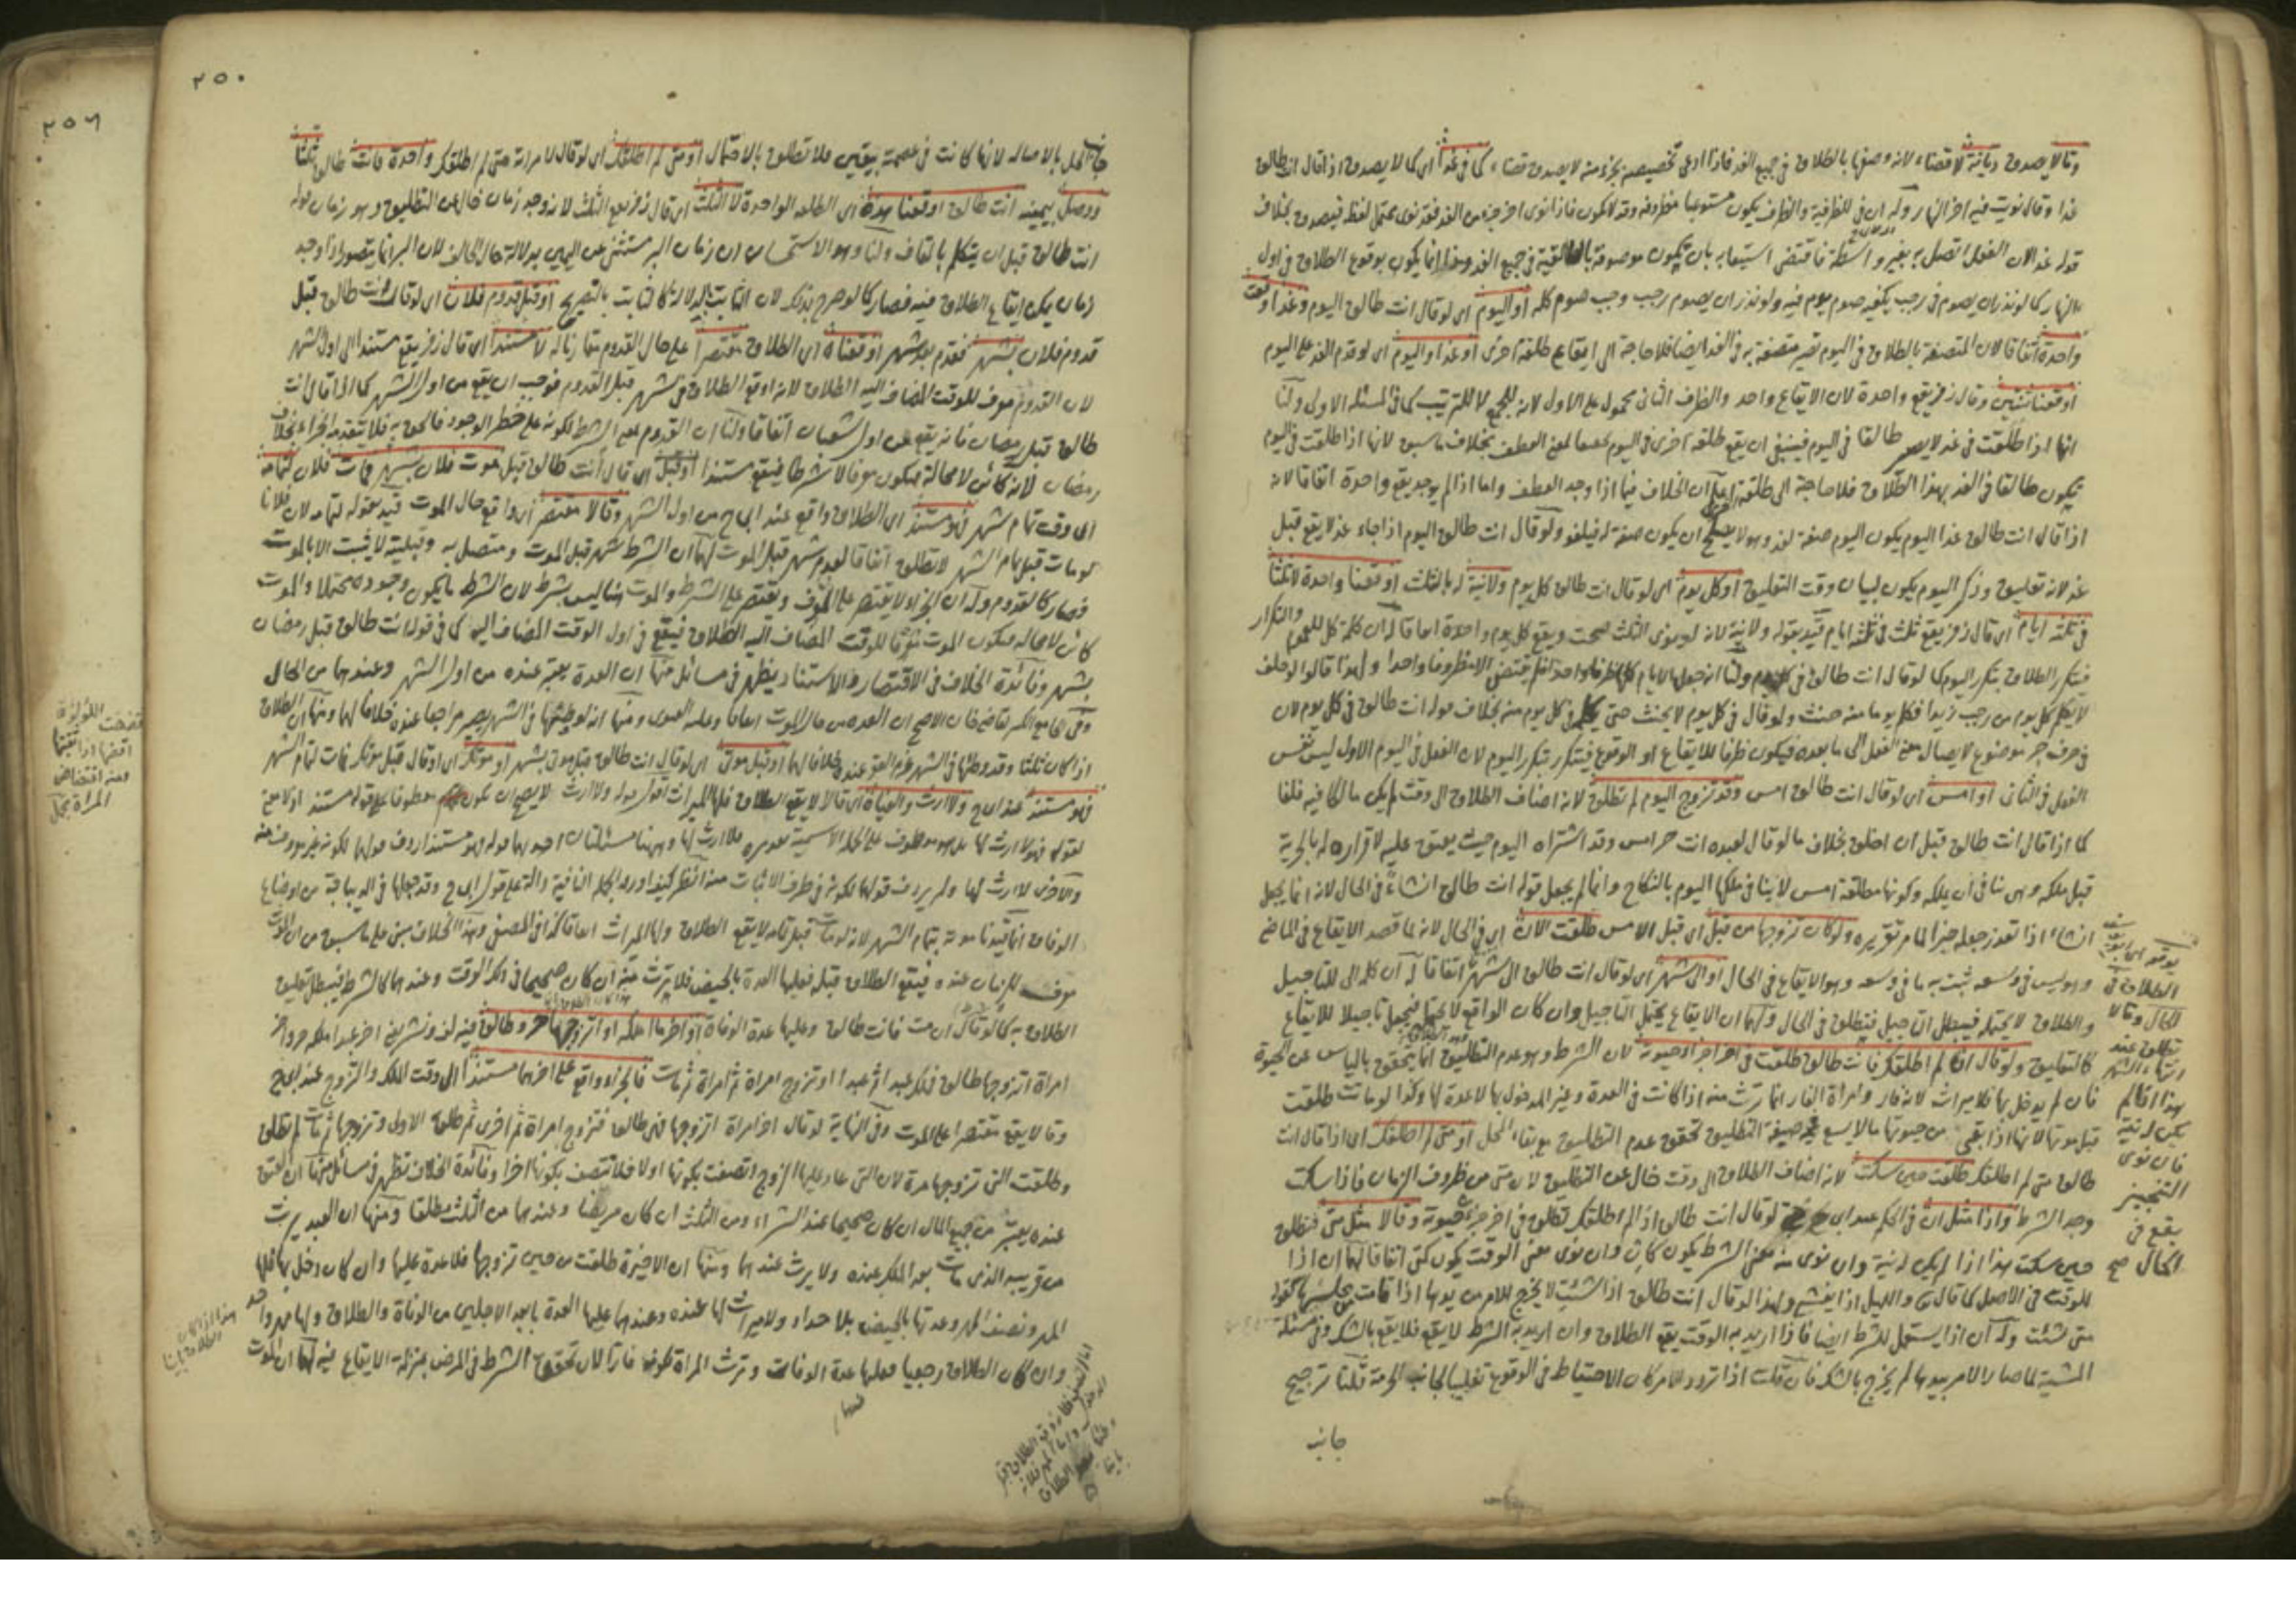 وقالا يصدق ديانة لا قضاء لانه وصفها بالطلاق في جميع الغد فاذا ادعى تخصيصه بجزء منه لا يصدق قضاء كما في غدا اي كما لا يصدق اذا قال انت طالق
غدا وقال نويت فيه اخر النهار وله ان في للظرفية والظرف يكون مستوعبا مظروفه وقد لا يكون فاذا نوى اخر جزء من الغد فقد نوى محتمل لفظ فيصدق بخلاف
قوله غدا لان الفعل اتصل به بغير واسطة فاقتضى استيعابه بان يكون موصوفة بالطالقية في جميع الغد وهذا انما يكون بوقوع الطلاق في اول
النهار كما لو نذر ان يصوم في رجب يكفيه صوم يوم فيه ولو نذر ان يصوم رجب وجب صوم كله او اليوم اي لو قال انت طالق اليوم وغدا
واحدة اتفاقا لان المتصفة بالطلاق في اليوم تصير متصفة به في الغد ايضا فلا حاجة الى ايقاع طلقة اخرى او غدا واليوم اي لو قدم الغد على اليوم
اوقعنا ثنتين وقال زفر يقع واحدة لان الايقاع واحد والظرف الثاني محمول على الاول لانه للجمع لا للترتيب كما في المسئلة الاولى ولنا
انها اذا طلقت في غد لا يصير طالقا في اليوم فينبغي ان يقع طلقة اخرى في اليوم لمعنى العطف بخلاف ما سبق لانها اذا طلقت في اليوم
يكون طالقا في الغد بهذا الطلاق فلا حاجة الى طلقة اعلم ان الخلاف فيما اذا وجد العطف واما اذا لم يوجد يقع واحدة اتفاقا لانه
اذا قال انت طالق غدا اليوم يكون اليوم صفة لغد وهو لا يصلح ان يكون صفة له فيلغو ولو قال انت طالق اليوم اذا جاء غد لا يقع قبل
غد لانه تعليق وذكر اليوم يكون لبيان وقت التعليق او كل يوم اي لو قال انت طالق كل يوم ولانية له بالثلث اوقعنا واحدة لا ثلثا
في ثلثة ايام اي قال زفر يقع ثلث في ثلثة ايام قيد بقوله ولانية لانه لو نوى الثلث صحت ويقع كل يوم واحدة اتفاقا له ان كلمة كل للعموم والتكرار
فيتكرر الطلاق بتكرر اليوم كما لو قال انت طالق في كل يوم ولنا انه جعل الايام كلها ظرفا واحدا فلم يقتض الا مظروفا واحدا ولهذا قالوا لو حلف
لا يكلم كل يوم من رجب زيدا فكلم يوما منه حنث ولو قال في كل يوم لا يحنث حتى يكلم في كل يوم منه بخلاف قوله انت طالق في كل يوم لان
في حرف جر موضوع لايصال معنى الفعل الى ما بعده فيكون ظرفا للايقاع او الوقوع فيتكرر بتكرر اليوم لان الفعل في اليوم الاول ليس نفس
الفعل في الثاني او امس اي لو قال انت طالق امس وقد تزوج اليوم لم تطلق لانه اضاف الطلاق الى وقت لم يكن مالكا فيه فلغا
كما اذا قال انت طالق قبل ان اخلق بخلاف ما لو قال لعبده انت حر امس وقد اشتراه اليوم حيث يعتق عليه لاقراره له بالحرية
قبل ملكه وهي تنافي ان يملكه وكونها مطلقة امس لا ينافي ملكها اليوم بالنكاح وانما لم يجعل قوله انت طالق انشاء في الحال لانه انما يجعل
انشاء اذا تعذر جعله خبرا لما مر تقريره ولو كان تزوجها من قبل اي قبل الامس طلقت الان اي في الحال لانه لما قصد الايقاع في الماضي
وهو ليس في وسعه ثبت به ما في وسعه وهو الايقاع في الحال او الى شهر اي لو قال انت طالق الى شهر اتفاقا له ان كلمة الى للتاجيل
والطلاق لا يحتمله فيبطل التاجيل فيطلق في الحال ولهما ان الايقاع يحتمل التاجيل وان كان الواقع لا يحتمله فيجعل تاجيلا للايقاع
كالتعليق ولو قال ان لم اطلقك فانت طالق طلقت في اخر اجزاء حيوته لان الشرط وهو عدم التطليق انما يتحقق بالياس عن الحيوة
فان لم يدخل بها فلا ميراث لانه فار وامراة الفار انما ترث منه اذا كانت في العدة وغير المدخول بها لا عدة لها وكذا لو ماتت طلقت
قبل موتها لانها اذا بقي من حيوتها ما لا يسع صيغة التطليق تحقق عدم التطليق مع بقاء المحل او متى لم اطلقك اي اذا قال انت
طالق متى لم اطلقك طلقت حين سكت لانه اضاف الطلاق الى وقت خال عن التطليق لان متى من ظروف الزمان فاذا سكت
وجد الشرط واذا مثل ان في الحكم عند ابي ح لو قال انت طالق اذا لم اطلقك تطلق في اخر جزء حيوته وقالا مثل متى فتطلق
حين سكت هذا اذا لم يكن له نية وان نوى منه معنى الشرط يكون كان وان نوى معنى الوقت يكون كمتى اتفاقا لهما ان اذا
للوقت في الاصل كما قال تع والليل اذا يغشى ولهذا لو قال انت طالق اذا شئت لا يخرج الامر من يدها اذا قامت من مجلسها كقوله
متى شئت وله ان اذا يستعمل للشرط ايضا فاذا اريد به الوقت يقع الطلاق وان اريد به الشرط لا يقع فلا يقع بالشك وفي مسئلة
المشية لما صار الامر بيدها لم يخرج بالشك فان قلت اذا تردد الامر كان الاحتياط في الوقوع تغليبا لجانب الحرمة قلنا ترجيح
جانب
الطلاق في
الحال وقالا
تطلق عند
انتهاء الشهر
هذا اذا لم
يكن له نية
فان نوى
التنجيز
يقع في
الحال صح
٢٥٠
الحل بالاصالة لانها كانت في عصمة بيقين فلا تطلق بالاحتمال او متى لم اطلقك اي لو قال لامراته متى لم اطلقك واحدة فانت طالق ثلثا
ووصل بيمينه انت طالق اوقعنا هذه اي الطلقة الواحدة لا الثلث اي قال زفر يقع الثلث لانه وجد زمان خال عن التطليق وهو زمان قوله
انت طالق قبل ان يتكلم بالقاف ولنا وهو الاستحسان ان زمان البر مستثنى عن اليمين بدلالة حال الحالف لان البر انما يتصور اذا وجد
زمان يمكن ايقاع الطلاق فيه فصار كما لو صرح بذلك لان الثابت بالدلالة كالثابت بالتصريح او قبل قدوم فلان اي لو قال انت طالق قبل
قدوم فلان بشهر فقدم بعد شهر اوقعناه اي الطلاق مقتصرا على حال القدوم مقارنا له لا مستندا اي قال زفر يقع مستندا الى اول الشهر
لان القدوم معرف للوقت المضاف اليه الطلاق لانه اوقع الطلاق في شهر قبل القدوم فوجب ان يقع من اول الشهر كما اذا قال انت
طالق قبل رمضان فانه يقع من اول شعبان اتفاقا ولنا ان القدوم بمعنى الشرط لكونه على خطر الوجود فالحق به فلا يتقدمه الجزاء بخلاف
رمضان لانه كائن لا محالة فيكون معرفا لا شرطا فيقع مستندا او قبل اي قال انت طالق قبل موت فلان بشهر فمات فلان لتمامه
اي وقت تمام شهر فهو مستند اي الطلاق واقع عند ابي ح من اول الشهر وقالا مقتصر اي واقع حال الموت قيد بقوله لتمامه لان فلانا
لو مات قبل تمام الشهر لا تطلق اتفاقا لعدم شهر قبل الموت لهما ان الشرط شهر قبل الموت ومتصل به وقبليته لا يثبت الا بالموت
فصار كالقدوم وله ان الجزاء لا يقتصر على المعرف ويقتصر على الشرط والموت هنا ليس بشرط لان الشرط ما يكون وجوده محتملا والموت
كائن لا محالة فيكون الموت معرفا للوقت المضاف اليه الطلاق فيقع في اول الوقت المضاف اليه كما في قوله انت طالق قبل رمضان
بشهر وفائدة الخلاف في الاقتصار والاستناد يظهر في مسائل منها ان العدة يعتبر عنده من اول الشهر وعندهما من الحال
وفي الجامع الكبير لقاضي خان الاصح ان العدة من حال الموت اتفاقا وعليه الفتوى ومنها انه لو وطئها في الشهر يصير مراجعا عنده خلافا لهما ومنها ان الطلاق
اذا كان ثلثا وقد وطئها في الشهر غرم العقر عنده خلافا لهما او قبل موتي اي لو قال انت طالق قبل موتي بشهر او موتك اي او قال قبل موتك فمات لتمام الشهر
فهو مستند عند ابي ح ولا ارث والغياه اي قالا لا يقع الطلاق فلها الميراث اقول قوله ولا ارث لا يصح ان يكون معطوفا على قوله مستند اذ لا معنى
لقوله فهو لا ارث لها بل هو معطوف على الجملة الاسمية
والاخرى لا ارث لها ولم يردف قولهما لكونه في طرف الاثبات
الوفاق انما قيدنا موته بتمام الشهر لانه لو مات قبل تمامه لا يقع الطلاق ولها الميراث اتفاقا كذا في المصفى وهذا الخلاف مبني على ما سبق من ان الموت
معرف للزمان عنده فيقع الطلاق قبله فعليها العدة بالحيض فلا يرث منه ان كان صحيحا في ذلك الوقت وعندهما كالشرط فيبطل تعليق
الطلاق به كما لو قال ان مت فانت طالق وعليها عدة الوفاة او اخر ما املكه او اتزوجها حر وطالق فيه لف ونشر يعني اخر عبد املكه حر واخر
امراة اتزوجها طالق فملك عبدا ثم عبدا او تزوج امراة ثم امراة ثم مات فالجزاء واقع على اخرهما مستندا الى وقت الملك والتزوج عند ابي ح
وقالا يقع مقتصرا على الموت وفي النهاية لو قال اخر امراة اتزوجها فهي طالق فتزوج امراة ثم اخرى ثم طلق الاولى وتزوجها ثم مات لم تطلق
وطلقت التي تزوجها مرة لان التي عاد عليها الزوج اتصفت بكونها اولا فلا تتصف بكونها اخرا وفائدة الخلاف تظهر في مسائل منها ان العتق
عنده يعتبر من جميع المال ان كان صحيحا عند الشراء ومن الثلث ان كان مريضا وعندهما من الثلث مطلقا ومنها ان العبد يرث
من قريبه الذي مات بعد الملك عنده ولا يرث عندهما ومنها ان الاخيرة طلقت من حين تزوجها فلا عدة عليها وان كان دخل بها فلها
المهر ونصف المهر وعدتها بالحيض بلا حداد ولا ميراث لها عنده وعندهما عليها العدة بابعد الاجلين من الوفاة والطلاق ولها مهر واحد
وان كان الطلاق رجعيا فعليها عدة الوفات وترث المراة لكونه فارا لان تحقق الشرط في المرض بمنزلة الايقاع فيه لهما ان الموت
٢٥٦
اللؤلؤة